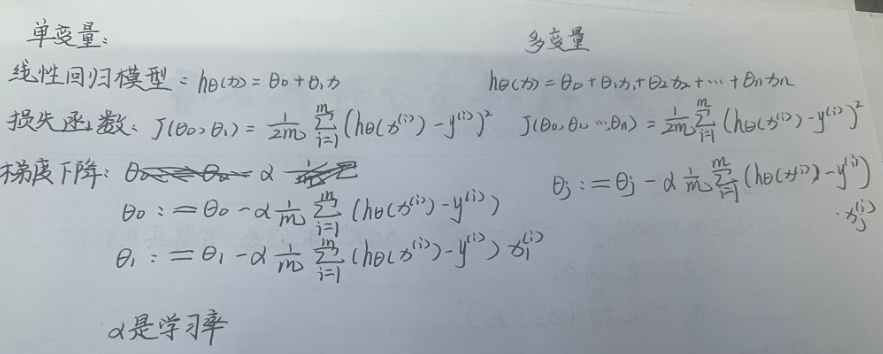 单变量: 多变量
线性回归模型: hθ(x) = θ₀ + θ₁x hθ(x) = θ₀ + θ₁x₁ + θ₂x₂ + ⋯ + θₙxₙ
损失函数: J(θ₀, θ₁) = 1/2m ∑ᵢ₌₁ᵐ (hθ(x⁽ⁱ⁾) − y⁽ⁱ⁾)² J(θ₀, θ₁, ⋯, θₙ) = 1/2m ∑ᵢ₌₁ᵐ (hθ(x⁽ⁱ⁾) − y⁽ⁱ⁾)²
梯度下降: α
θ₀ := θ₀ − α 1/m ∑ᵢ₌₁ᵐ (hθ(x⁽ⁱ⁾) − y⁽ⁱ⁾) θⱼ := θⱼ − α 1/m ∑ᵢ₌₁ᵐ (hθ(x⁽ⁱ⁾) − y⁽ⁱ⁾) · xⱼ⁽ⁱ⁾
θ₁ := θ₁ − α 1/m ∑ᵢ₌₁ᵐ (hθ(x⁽ⁱ⁾) − y⁽ⁱ⁾) x₁⁽ⁱ⁾
α是学习率